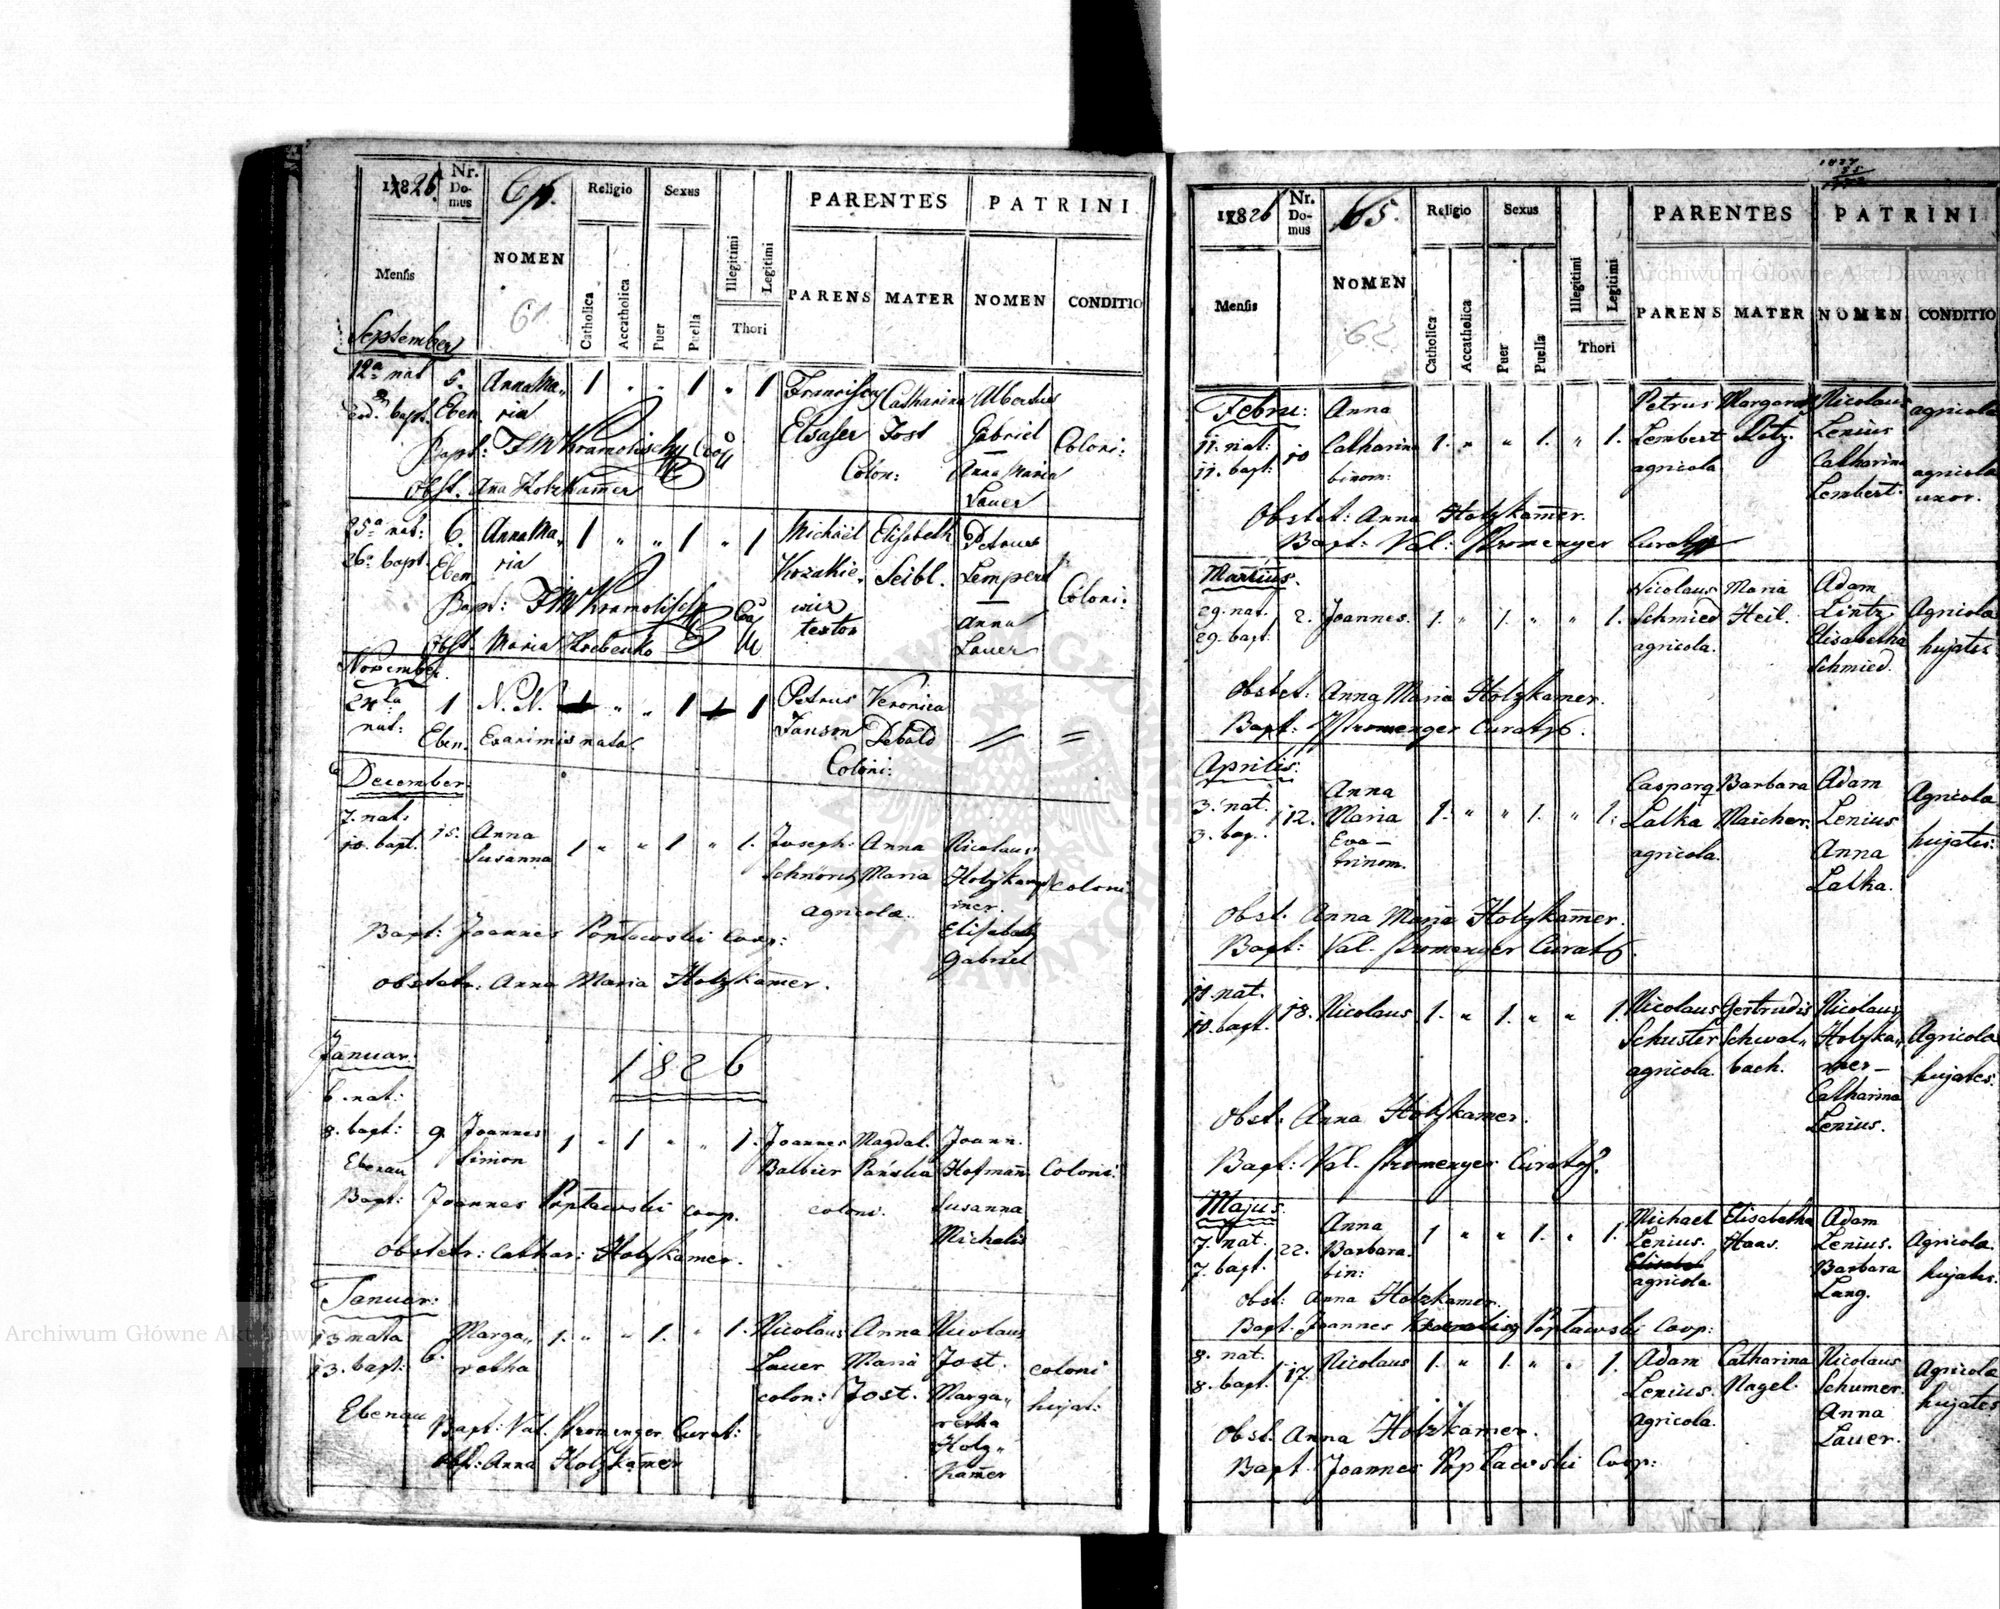 1825.
Nr. Domus
64.
NOMEN
61
Religio
Catholica
Accatholica
Sexus
Puer
Puella
Illegitimi
Legitimi
Thori
PARENTES
PARENS
MATER
PATRINI
NOMEN
CONDITIO
Mensis
September
12a nat
ead. bapt.
5.
Eben
Anna Ma„
ria
1 „ „ 1 „ 1
Franciscy
Elsasser
Catharina
Jost
Colon:
Albertus
Gabriel
Anna Maria
Lauer
Coloni:
Bapt: FM Kramolischy Coop
Obst. Ana Holzkamer
25a nat:
26a bapt.
6.
Eben
Anna Ma„
ria
1 „ „ 1 „ 1
Michael
Kozakie„
wicz
textor
Elisabeth
Seibl.
Petrus
Lempert
Anna
Lauer
Coloni:
Bapt: FM Kramolischy Coop
Obst. Maria Hrebenko
November
24ta
nat:
1
Eben.
N. N.
Exanimis nata.
Petrus
Janson
Veronica
Debold
Coloni:
December
7. nat:
10. bapt.
15.
Anna
Susanna
1 „ „ 1 „ 1.
Joseph:
Anna
Maria
agricolae
Nicolaus
Holzkam
mer.
Elisabeth
Gabriel
coloni
Bapt: Joannes Poptawski Coop:
Obstetr: Anna Maria Holzkamer.
1826
Januar.
6. nat:
8. bapt:
Ebenau
9.
Joannes
Simon
1 „ 1 „ „ 1.
Joannes
Balbier
Magdal.
coloni.
Joann.
Hofmann
Susanna
Michelis
Coloni:
Bapt: Joannes Poptawski coop.
Obstetr: Cathar: Holzkamer.
Januar:
13 nata
13. bapt:
Ebenau
6.
Marga„
retha
1. „ „ 1. „ 1.
Nicolaus
Lauer
colon:
Anna
Maria
Jost.
Nicolaus
Jost.
Marga„
retha
Holz„
kamer
coloni
hujat:
Bapt: Val. Stromenger Curat:
Obst: Anna Holzkamer
1826
Nr. Domus
65.
NOMEN
62
Religio
Catholica
Accatholica
Sexus
Puer
Puella
Illegitimi
Legitimi
Thori
PARENTES
PARENS
MATER
PATRINI
NOMEN
CONDITIO
Mensis
Febru:
11. nat:
11. bapt:
10
Anna
Catharina
binom:
1. „ „ 1. „ 1.
Petrus
Lembert
agricola
Nicolaus
Lenius
Catharina
Lembert.
agricola
agricola
uxor.
Obstet: Anna Holzkamer.
Bapt: Val: Stromenger Curatus
Martius.
29. nat.
29. bapt.
2.
Joannes.
1. „ 1. „ „ 1.
Nicolaus
Schmied
agricola.
Maria
Heil.
Adam
Lintz
Elisabetha
Schmied.
Agricola
hujates
Obstet: Anna Maria Holzkamer.
Bapt: Stromenger Curatus.
Aprilis.
3. nat.
3. bap.
12.
Anna
Maria
Eva —
trinom.
1. „ „ 1. „ 1.
Casparus
Lalka
agricola.
Barbara
Maicher.
Adam
Lenius
Anna
Lalka.
Agricola
hujates:
Obst. Anna Maria Holzkamer.
Bapt: Val. Stromenger Curatus.
10. bapt.
18.
Nicolaus
1. „ 1. „ „ 1.
Nicolaus
Schuster
agricola
Gertrudis
Schwal„
bach.
Nicolaus
Holzka„
mer —
Catharina
Lenius.
Agricola
hujates.
Obst: Anna Holzkamer.
Bapt: Val. Stromenger Curatus.
Majus.
7. nat.
7. bapt.
22.
Anna
Barbara.
bin:
1 „ „ 1. „ 1.
Michael
Lenius.
agricola.
Elisabetha
Haas.
Adam
Lenius.
Barbara
Lang.
Agricola
hujates.
Obst: Anna Holzkamer.
Bapt. Joannes Poptawski Coop:
8. nat.
8. bapt.
17.
Nicolaus
1. „ 1. „ „ 1.
Adam
Lenius.
agricola.
Catharina
Nagel.
Nicolaus
Schumer.
Anna
Lauer.
Agricola
hujates
Obst. Anna Holzkamer.
Bapt. Joannes Poptawski Coop:
Archiwum Główne Akt Dawnych